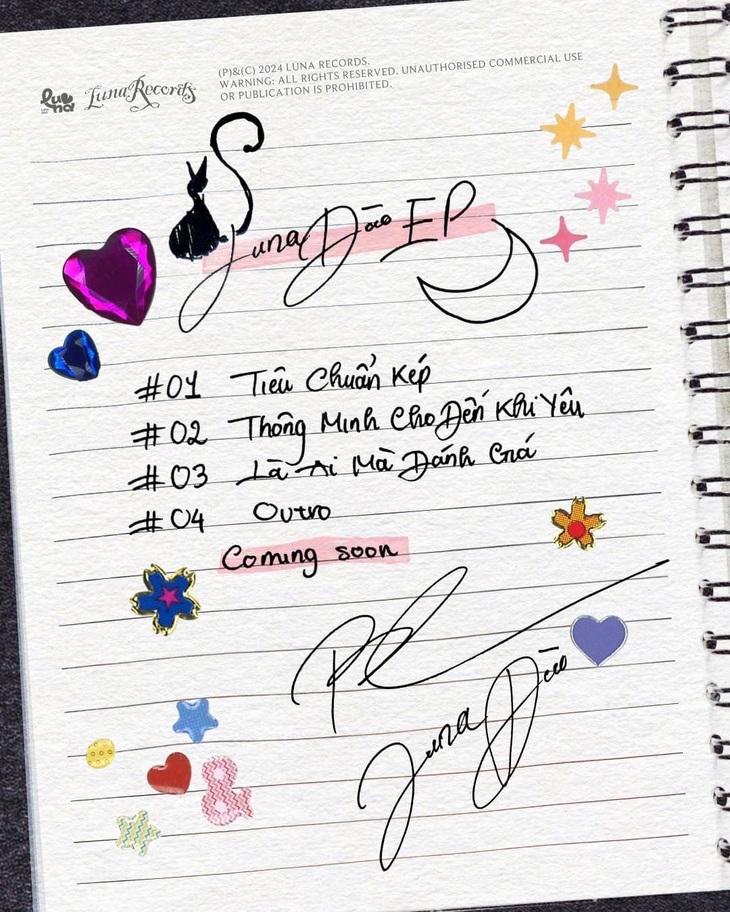 luena
Luna Records
(P)&(C) 2024 LUNA RECORDS.
WARNING: ALL RIGHTS RESERVED. UNAUTHORISED COMMERCIAL USE
OR PUBLICATION IS PROHIBITED.
Luna Đào EP
#01 Tiêu Chuẩn Kép
#02 Thông Minh Cho Đến Khi Yêu
#03 Là Ai Mà Đánh Giá
#04 Outro
Coming soon
Luna Đào
&